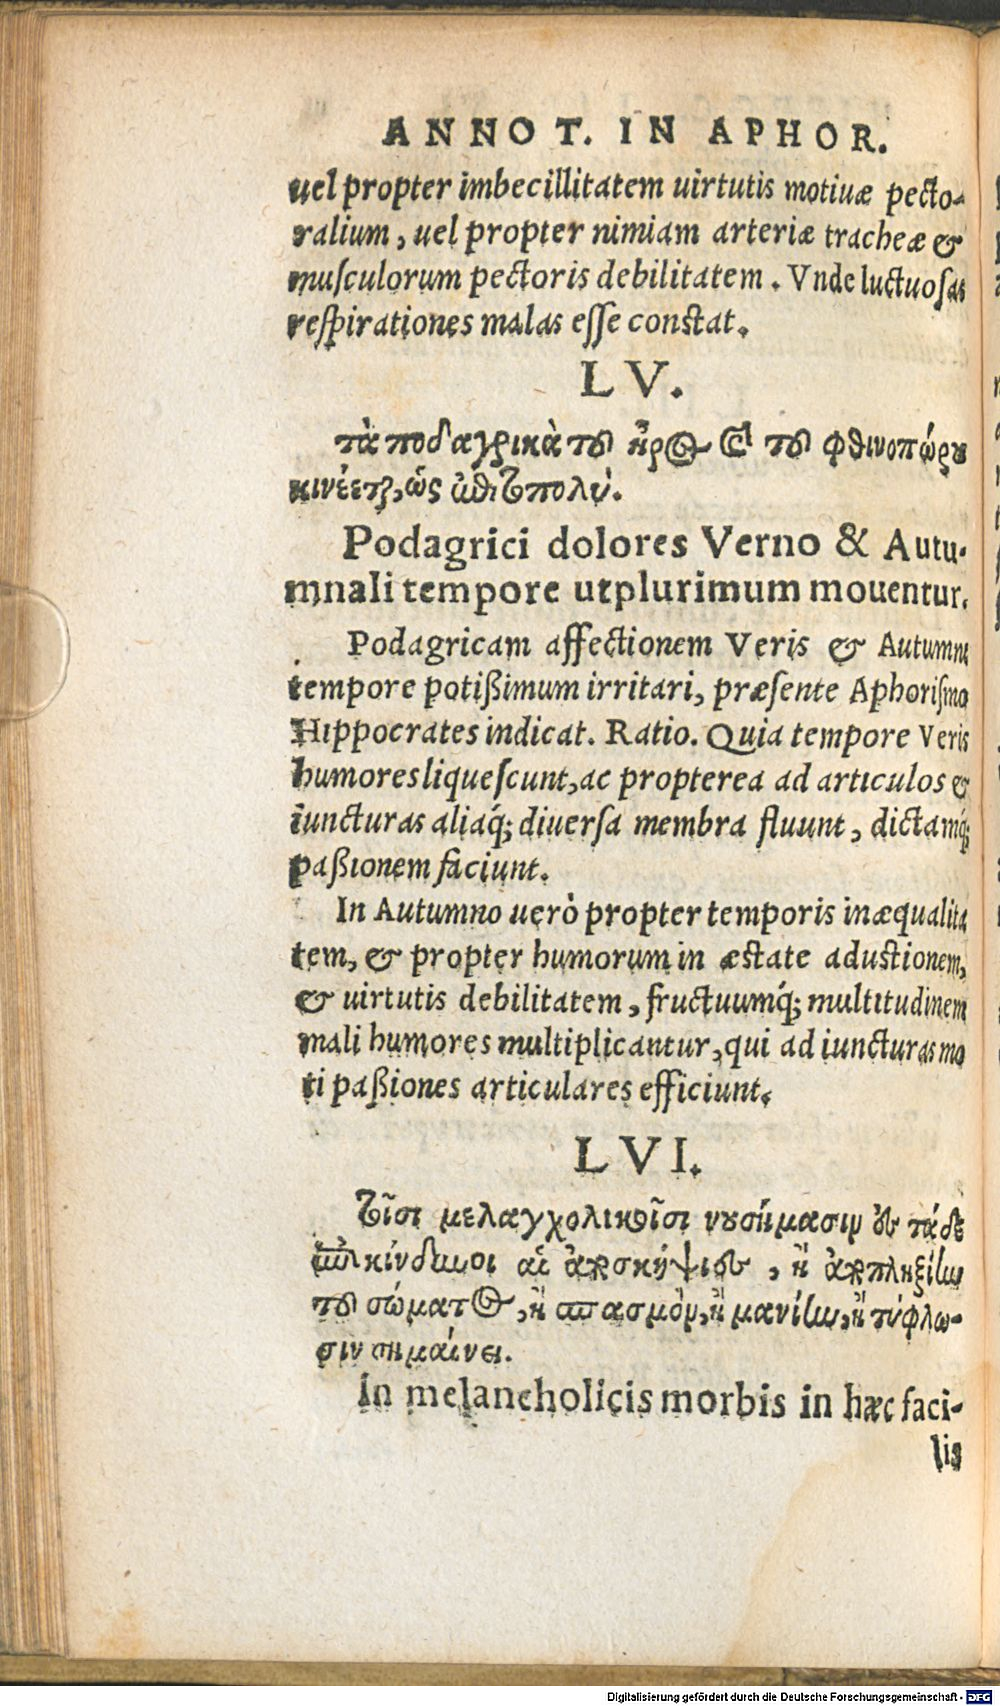 ANNOT. IN APHOR.
uel propter imbecillitatem uirtutis motiuæ pecto-
ralium, uel propter nimiam arteriæ tracheæ &
musculorum pectoris debilitatem. Vnde luctuosas
respirationes malas esse constat.
LV.
τὰ ποδαγρικὰ τοῦ ἦρος καὶ τοῦ φθινοπώρου
κινέεται, ὡς ἐπιτοπολύ.
Podagrici dolores Verno & Autu-
mnali tempore utplurimum mouentur.
Podagricam affectionem Veris & Autumni
tempore potißimum irritari, præsente Aphorismo
Hippocrates indicat. Ratio. Quia tempore Veris
humores liquescunt, ac propterea ad articulos &
iuncturas aliaq́; diuersa membra fluunt, dictamq́;
paßionem faciunt.
In Autumno uerò propter temporis inæqualita
tem, & propter humorum in æstate adustionem,
& uirtutis debilitatem, fructuumq́; multitudinem
mali humores multiplicantur, qui ad iuncturas mo
ti paßiones articulares efficiunt.
LVI.
τοῖσι μελαγχολικοῖσι νουσήμασιν ἐς τάδε
ἐπικίνδυνοι αἱ ἀποσκήψιες, ἢ ἀποπληξίην
τοῦ σώματος, ἢ σπασμὸν, ἢ μανίην, ἢ τύφλω-
σιν σημαίνει.
In melancholicis morbis in hæc faci-
lis
Digitalisierung gefördert durch die Deutsche Forschungsgemeinschaft - DFG